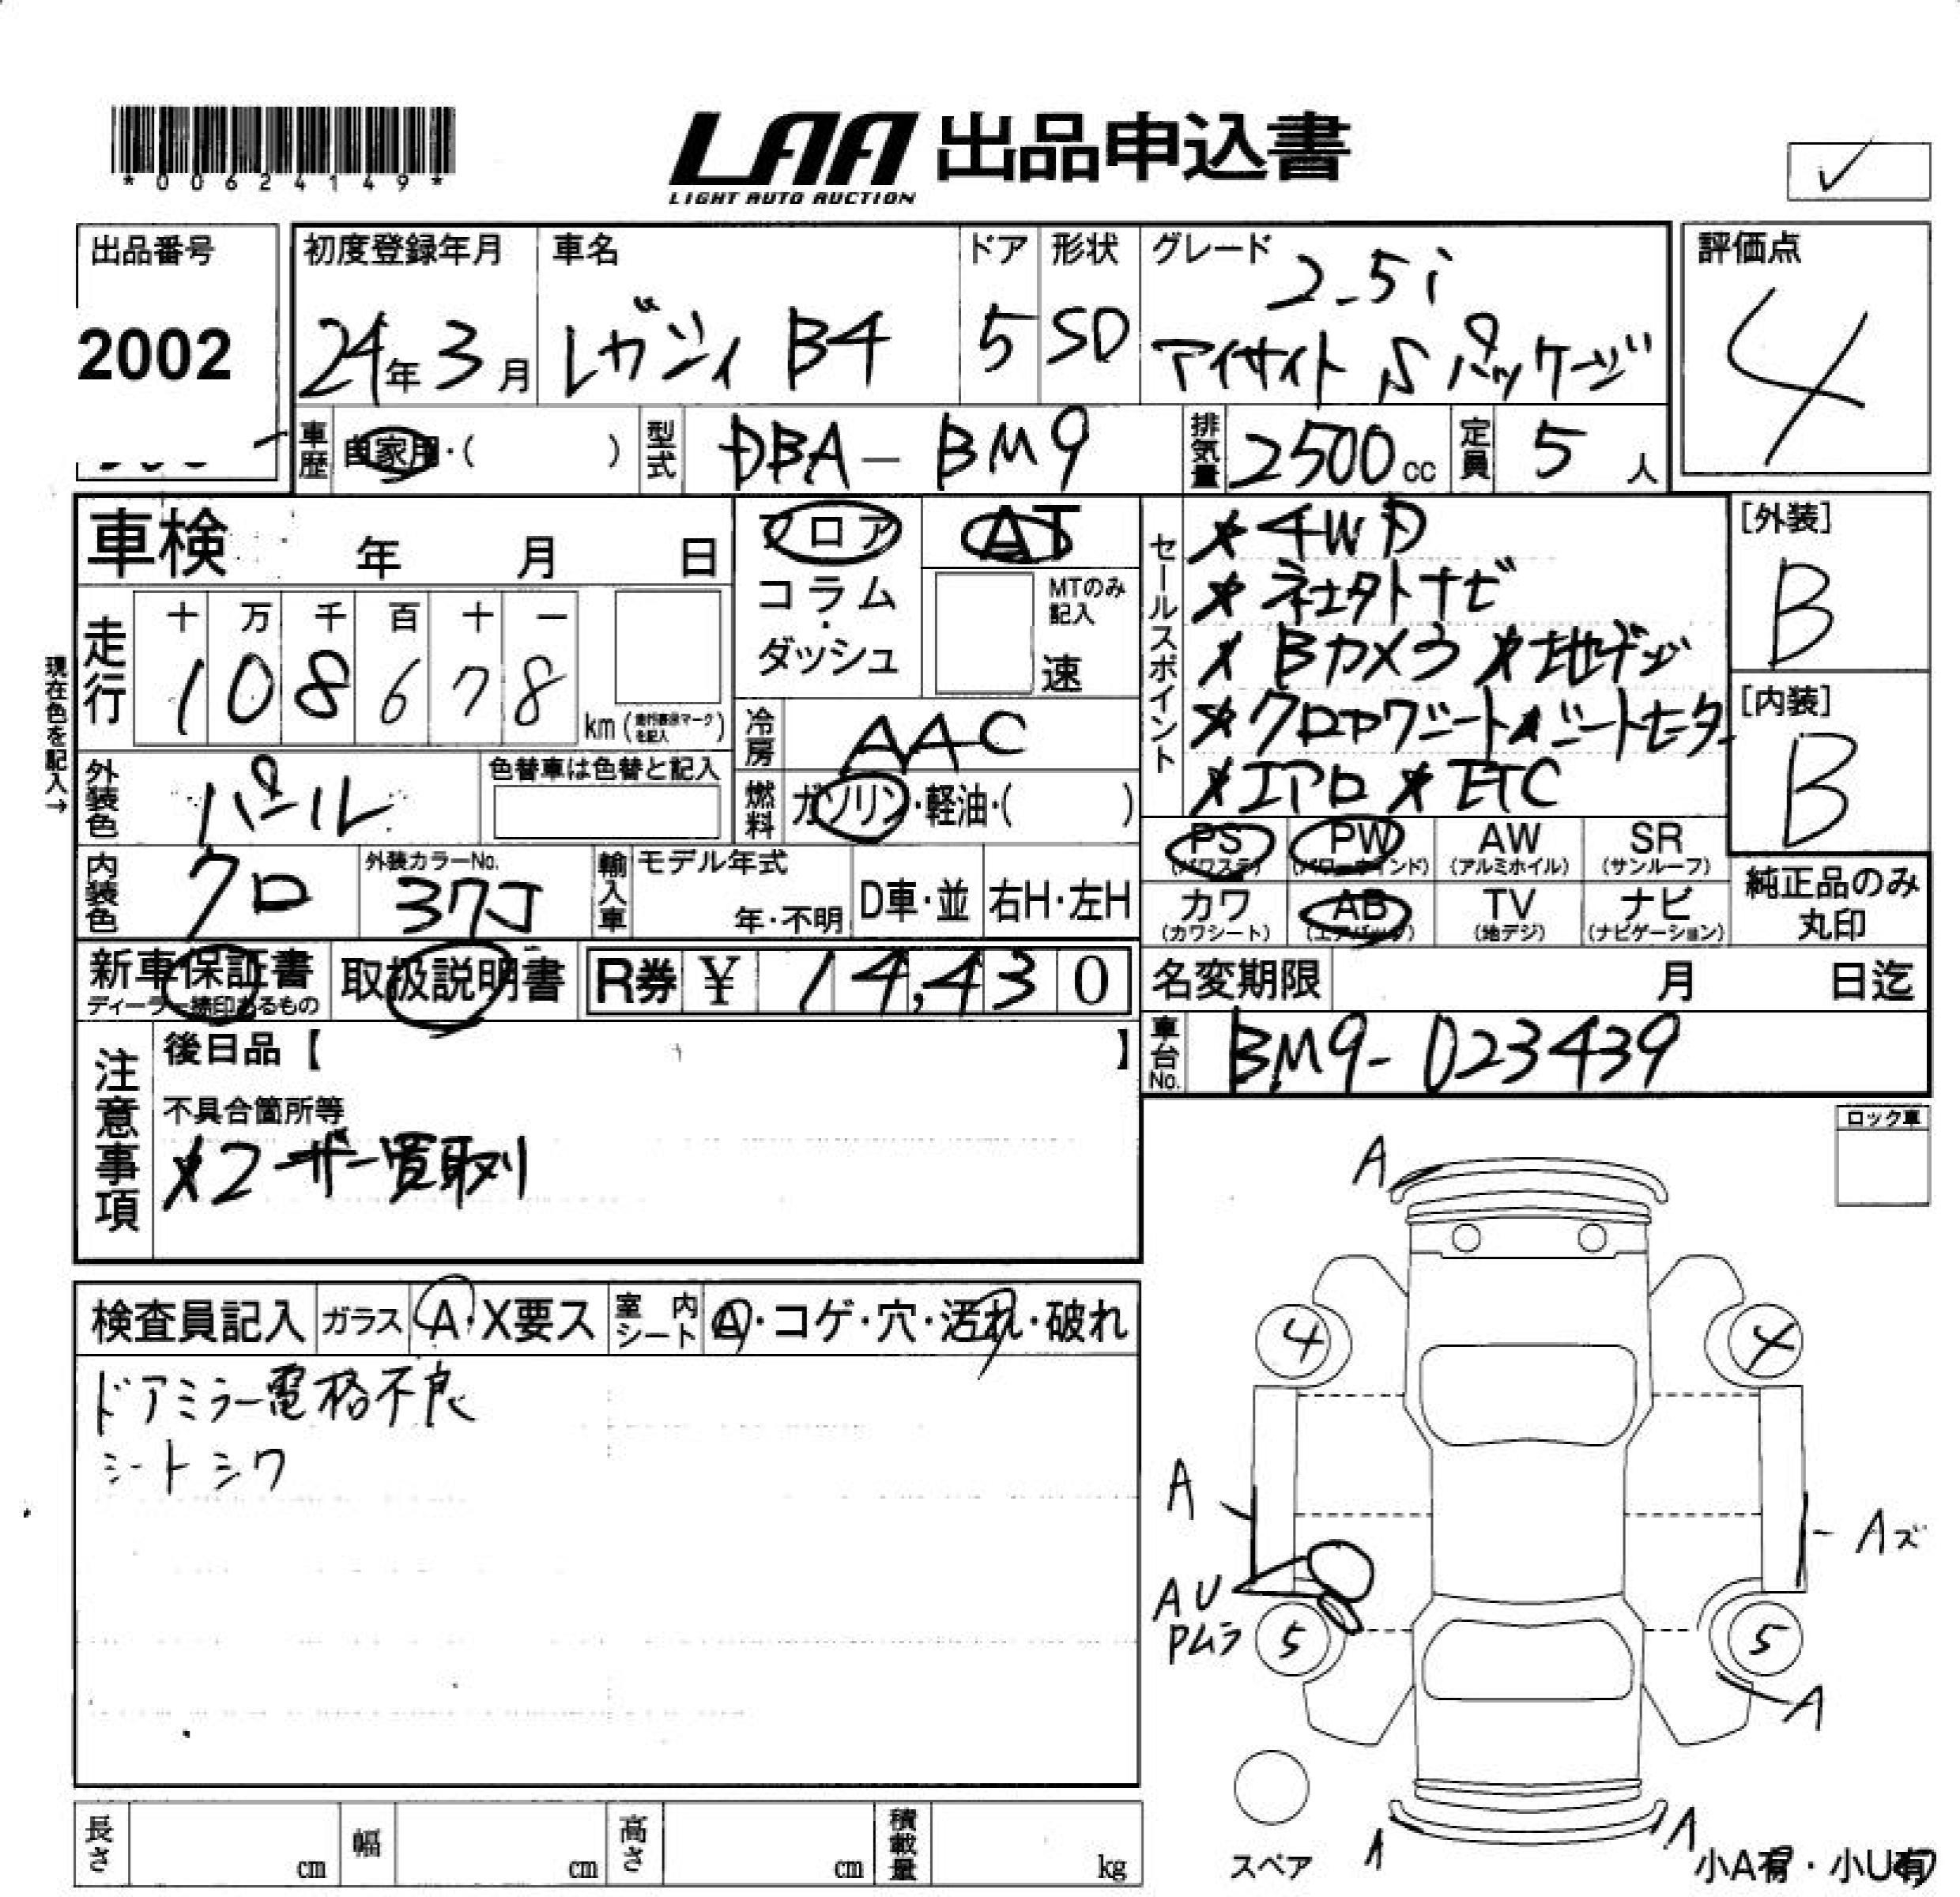 *00624149*
LAA 出品申込書
LIGHT AUTO AUCTION
出品番号
2002
初度登録年月
24年3月
車名
レガシィ B4
ドア
5
形状
SD
グレード
2.5i
アイサイト Sパッケージ
評価点
4
車歴
自家用・( )
型式
DBA-BM9
排気量
2500cc
定員
5人
車検 年 月 日
現在色を記入→
走行
十 万 千 百 十 一
1 0 8 6 7 8
km(走行表示マークを記入)
フロア
コラム
・
ダッシュ
AT
MTのみ記入
速
冷房
AAC
燃料
ガソリン・軽油・( )
外装色
パール
色替車は色替と記入
内装色
クロ
外装カラーNo.
37J
輸入車
モデル年式
年・不明
D車・並
右H・左H
セールスポイント
4WD
Bカメラ 地デジ
エアロ ETC
[外装]
B
[内装]
B
PS
(パワステ)
PW
(パワーウインド)
AW
(アルミホイル)
SR
(サンルーフ)
カワ
(カワシート)
AB
(エアバッグ)
TV
(地デジ)
ナビ
(ナビゲーション)
純正品のみ
丸印
新車保証書
取扱説明書
R券 ¥ 14,430
名変期限 月 日迄
車台No.
BM9-023439
注意事項
後日品【 】
不具合箇所等
ーザー買取り
ロック車
検査員記入
ガラス
A・X要ス
室内シート
A・コゲ・穴・汚れ・破れ
ドアミラー電格不良
シートシワ
A
4
4
A
Aズ
AU
Pムラ
5
5
A
A
A
スペア
小A有・小U有
長さ
cm
幅
cm
高さ
cm
積載量
kg